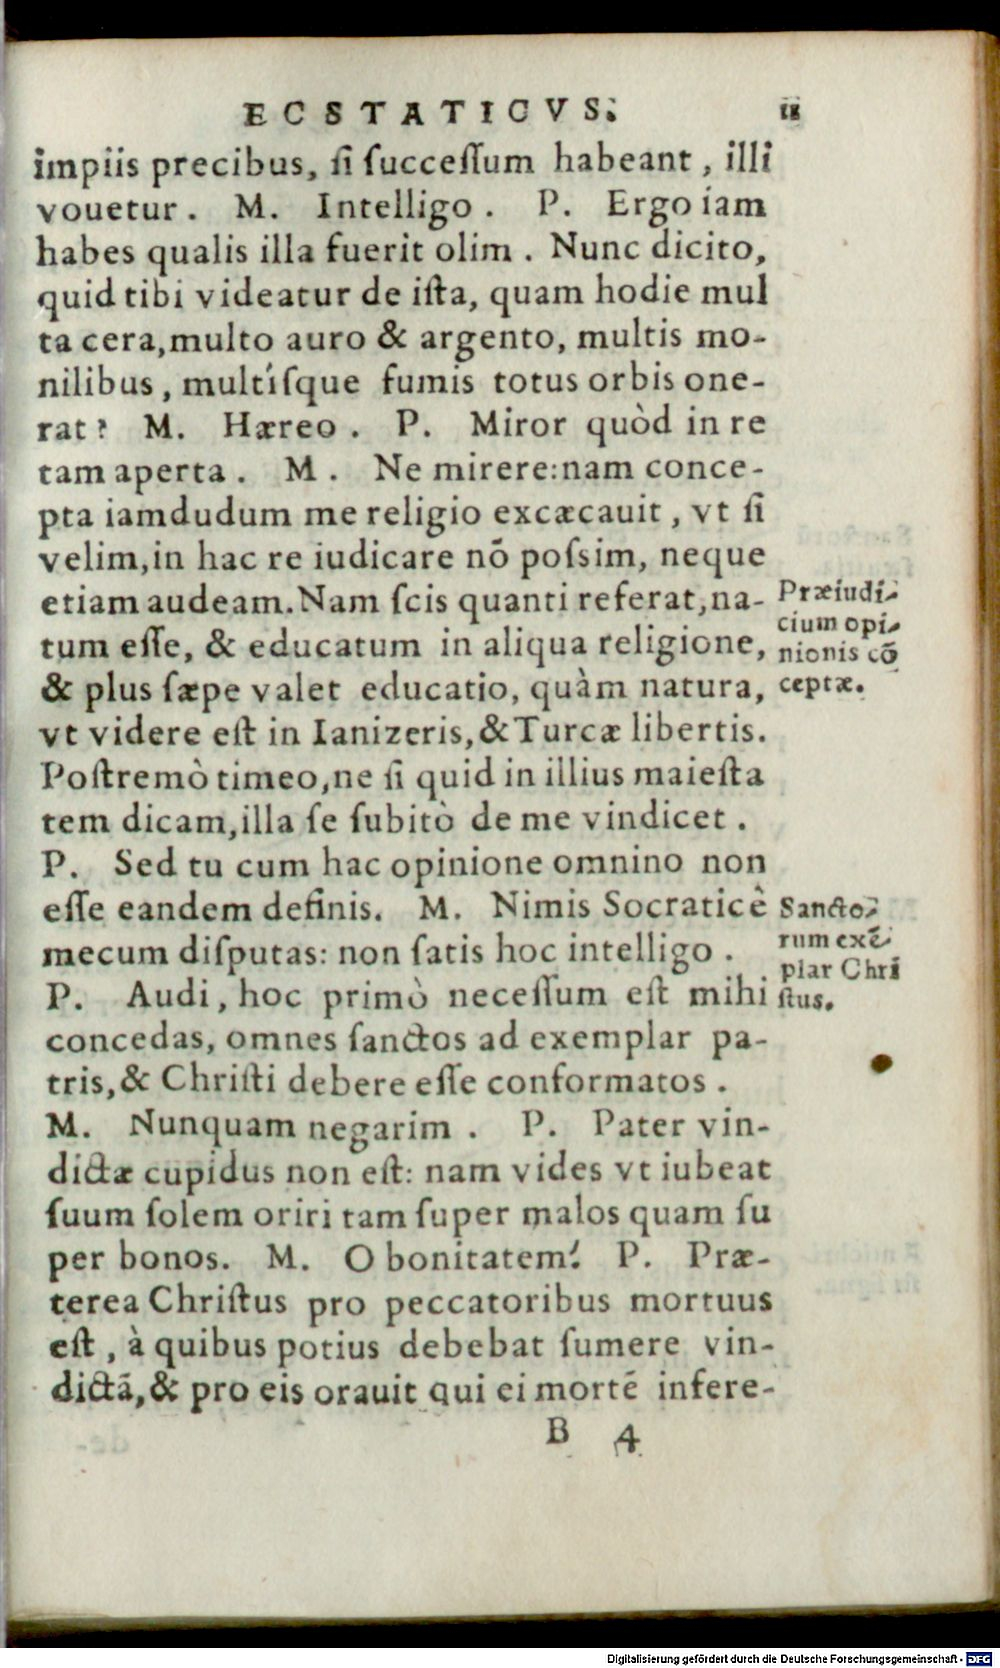 ECSTATICVS. 18
impiis precibus, ſi ſucceſſum habeant, illi
vouetur. M. Intelligo. P. Ergo iam
habes qualis illa fuerit olim. Nunc dicito,
quid tibi videatur de iſta, quam hodie mul
ta cera, multo auro & argento, multis mo-
nilibus, multíſque fumis totus orbis one-
rat? M. Hæreo. P. Miror quòd in re
tam aperta. M. Ne mirere: nam conce-
pta iamdudum me religio excæcauit, vt ſi
velim, in hac re iudicare nõ poſsim, neque
etiam audeam. Nam ſcis quanti referat, na-
tum eſſe, & educatum in aliqua religione,
& plus ſæpe valet educatio, quàm natura,
vt videre eſt in Ianizeris, & Turcæ libertis.
Poſtremò timeo, ne ſi quid in illius maieſta
tem dicam, illa ſe ſubitò de me vindicet.
P. Sed tu cum hac opinione omnino non
eſſe eandem definis. M. Nimis Socraticè
mecum diſputas: non ſatis hoc intelligo.
P. Audi, hoc primò neceſſum eſt mihi
concedas, omnes ſanctos ad exemplar pa-
tris, & Chriſti debere eſſe conformatos.
M. Nunquam negarim. P. Pater vin-
dictæ cupidus non eſt: nam vides vt iubeat
ſuum ſolem oriri tam ſuper malos quam ſu
per bonos. M. O bonitatem! P. Præ-
terea Chriſtus pro peccatoribus mortuus
eſt, à quibus potius debebat ſumere vin-
dictã, & pro eis orauit qui ei mortẽ infere-
B 4
Præiudi-
cium opi-
nionis cõ
ceptæ.
Sancto-
rum exẽ-
plar Chri
ſtus.
Digitalisierung gefördert durch die Deutsche Forschungsgemeinschaft - DFG